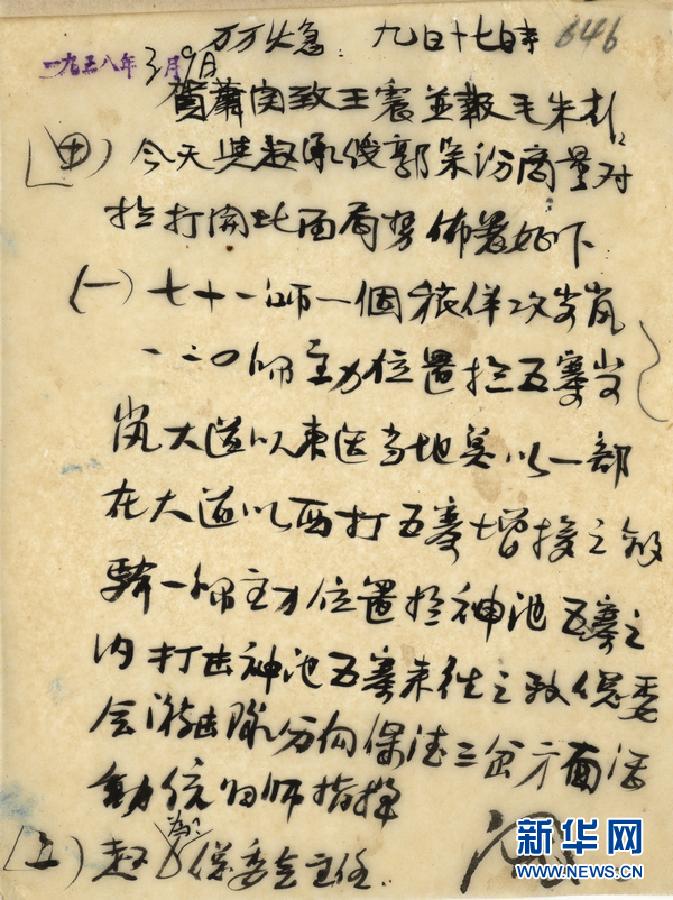 万万火急 九日十七时
646
一九三八年3月9日
賀蕭関致王震並報毛朱
(甲)今天與趙承綬郭宗汾商量对
於打開北面局势佈置如下
(一)七十一师一個旅佯攻岢嵐
一二〇师主力位置於五寨岢
嵐大道以東适当地点以一部
在大道以西打五寨增援之敌
騎一师主力位置於神池五寨之
内打击神池五寨来往之敌保委
会游击隊分向保德三岔方面活
動统归师指揮
趙為保委会主任
新华网
NEWS.CN